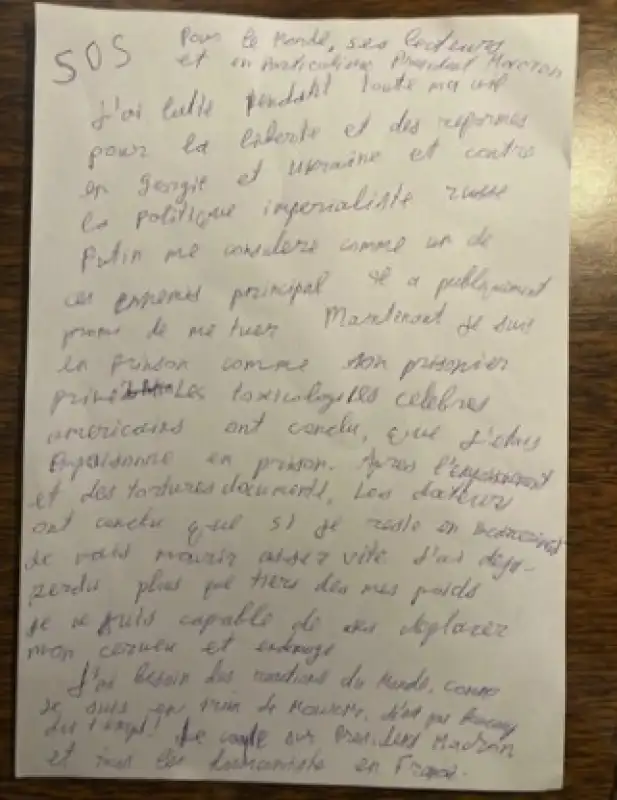 SOS
Pour le Monde, ses lecteurs
et en particulier President Macron
J'ai lutté pendant toute ma vie
pour la liberte et des reformes
en Georgie et Ukraine et contre
la politique imperialiste russe
Putin me considere comme un de
ces ennemis principal Il a publiquement
promis de me tuer Maintenant je suis
en prison comme son prisonier
privé Les toxicologistes celebres
americains ont conclu, que j'etais
empoisonné en prison. Apres l'empoisonement
et des tortures documents, Les docteurs
ont conclu que si je reste en
je vais mourir assez vite J'ai deja
perdu plus que tiers des mes poids
je ne suis capable de me deplacer
mon cerveau et endomagé
J'ai besoin des reactions du Monde, comme
je suis en train de mourir,
du temps! Je compte sur President Macron
et tous les humanistes en France.